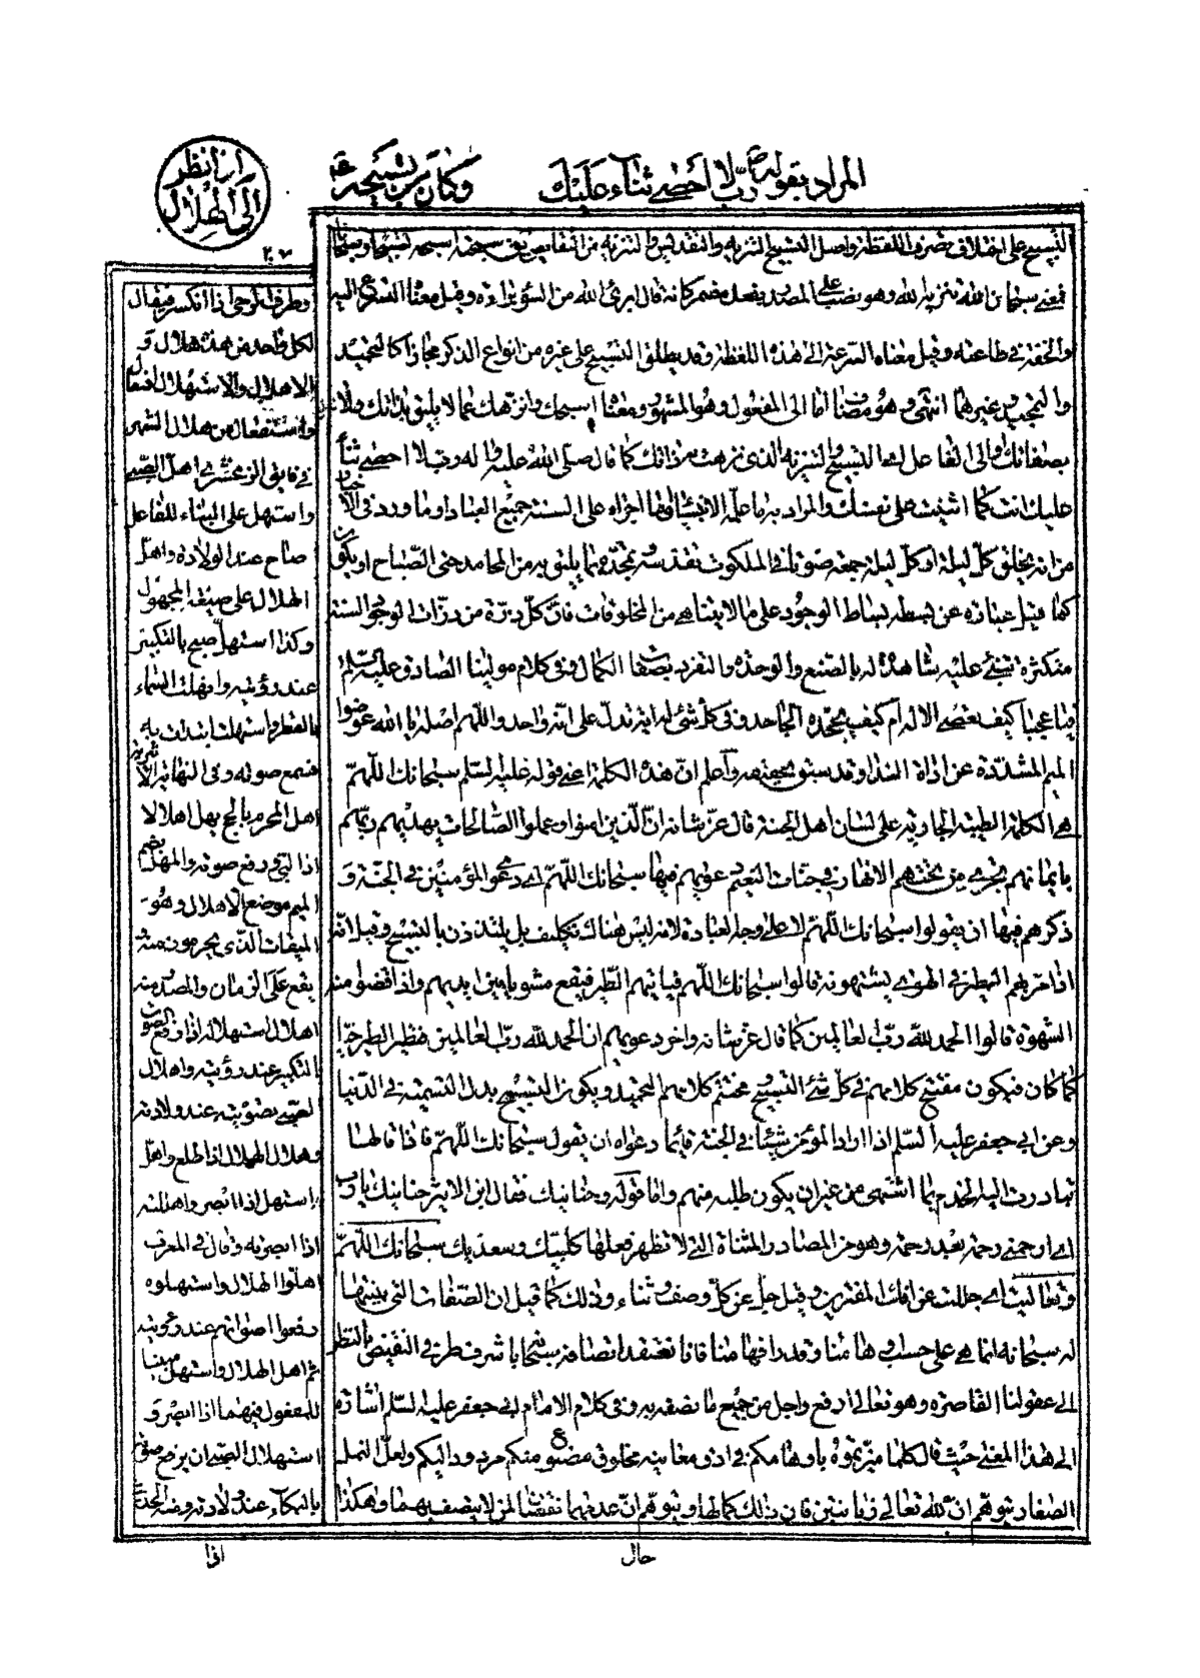 المراد بقوله ص ربّ لا أحصي ثناء عليك
وكان من تسبيحه ع
اذا نظر
الى الهلال
التسبيح على اختلاف تصرف اللفظة واصل التسبيح التنزيه والتقديس والتنزيه من النقايص يق سبحته اسبحه تسبيحا وسبحانا
فمعنى سبحان الله تنزيه الله وهو نصب على المصدر بفعل مضمر كانه قال ابرئ الله من السؤ براءة وقيل معناه التسرع اليه
والخفة في طاعته وقيل معناه السرعة الى هذه اللفظة وقد يطلق التسبيح على غيره من انواع الذكر مجازا كالتحميد
والتمجيد وغيرهما انتهى وهو مضاف اما الى المفعول وهو المشهور ومعناه اسبحك وانزهك عما لا يليق بذاتك ولا
بصفاتك والى الفاعل اى التسبيح والتنزيه الذى نزهت به ذاتك كما قال صلّى الله عليه واله وربّ لا احصى ثناء
عليك انت كما اثنيت على نفسك والمراد به ما علّمه الانبياء او ما اجراه على السنة جميع العباد او ما ورد فى الاخبار
من انه يخلق كلّ ليلة او كلّ ليلة جمعة صوتا فى الملكوت تقدسه وتمجّده بما يليق به من المحامد حتى الصّباح او يكون
كما قيل عبارة عن بسطه لبساط الوجود على ما لا يتناهى من المخلوقات فان كلّ ذرّة من ذرّات الوجود السنة
متكثرة تثنى عليه بشاهدة له بالصنع والوحدة والتفرد بصفات الكمال وفى كلام مولينا الصادق عليه السّلام
فيا عجبا كيف يعصى الاله ام كيف يجحده الجاحد وفى كلّ شئ له اية تدلّ على انه واحد واللّهم اصله يا الله عوضوا
الميم المشدّدة عن اداة النداء وقد سبق تحقيقه واعلم انّ هذه الكلمة اعنى قوله عليه السّلم سبحانك اللّهمّ
هى الكلمة الطيبة الجارية على لسان اهل الجنة قال عزّ شانه انّ الّذين امنوا وعملوا الصّالحات يهديهم ربّهم
بايمانهم تجرى من تحتهم الانهار فى جنات النعيم دعويهم فيها سبحانك اللّهمّ اى دعوى المؤمنين فى الجنّة و
ذكرهم فيها ان يقولوا سبحانك اللّهمّ لا على وجه العبادة لانه ليس هناك تكليف بل يلتذذون بالتسبيح وقيل انه
اذا مرّ بهم الطير فى الهوى يشتهونه قالوا سبحانك اللّهم فياتيهم الطير فيقع مشويا بين ايديهم واذا قضوا منه
الشهوة قالوا الحمد لله ربّ العالمين كما قال عزّ شانه واخر دعويهم ان الحمد لله ربّ العالمين فطير الطير حيّا
كما كان فيكون مفتتح كلامهم فى كلّ شئ التسبيح مختتم كلامهم التحميد ويكون التسبيح بدل التسمية فى الدّنيا
وعن ابى جعفر عليه السّلم اذا اراد المؤمن شيئا فى الجنة فانما دعواه ان يقول سبحانك اللّهمّ فاذا قالها
تبادرت اليه الخدم بما اشتهى من غير ان يكون طلبه منهم واما قوله وحنانيك فقال ابن الاثير حنانيك يا ربّ
اى ارحمنى رحمة بعد رحمة وهو من المصادر المثناة التى لا تظهر فعلها كلبيك وسعديك سبحانك اللّهمّ
وتعاليت اى جللت عن افك المفترين وقيل جل عن كلّ وصف وثناء وذلك كما قيل ان الصّفات التى نثبتها
له سبحانه انما هى على حسب اوهامنا وقدر افهامنا فانا نعتقد اتصافه سبحانه باشرف طرفى النقيض بالنظر
الى عقولنا القاصرة وهو تعالى ارفع واجل من جميع ما نصفه به وفى كلام الامام ابى جعفر عليه السّلم اشارة
الى هذا المعنى حيث قال كلما ميزتموه باوهامكم فى ادق معانيه مخلوق مصنوع منكم مردود اليكم ولعلّ النمل
الصغار تتوهم انّ لله تعالى زبانيتين فان ذلك كمالها وتتوهم انّ عدمهما نقصان لمن لا يتصف بهما وهكذا
حال
لكل واحد من هذه هلال و
الاهلال والاستهلال افعال
واستفعال من هلال الشهر
فى فايق الزمخشرى اهلّ الصّبى
واستهل على البناء للفاعل
صاح عند الولادة واهلّ
الهلال على صيغة المجهول
وكذا استهلّ صيح بالتكبير
عند رؤيته وانهلت السماء
بالمطر واستهلت ابتدات به
فسمع صوته وفى النهاية
اهل المحرم بالحج يهل اهلالا
اذا لبّى ورفع صوته والمهلّ بضم
الميم موضع الاهلال وهو
الميقات الّذى يحرمون منه و
يقع على الزمان والمصدر منه
اهلال استهلاله اذا رفع الصوت
بالتكبير عند رؤيته واهلال
الصبى تصويته عند ولادته
وهلال الهلال اذا طلع واهلّ
واستهل اذا ابصر واهللته
اذا ابصرته وقال فى المغرب
اهلّوا الهلال واستهلوه
رفعوا اصواتهم عند رؤيته
ثم اهل الهلال واستهل مبنيا
للمفعول فيهما اذا ابصر و
استهلال الصّبى ان يرفع صوته
بالبكاء عند ولادته
اذا